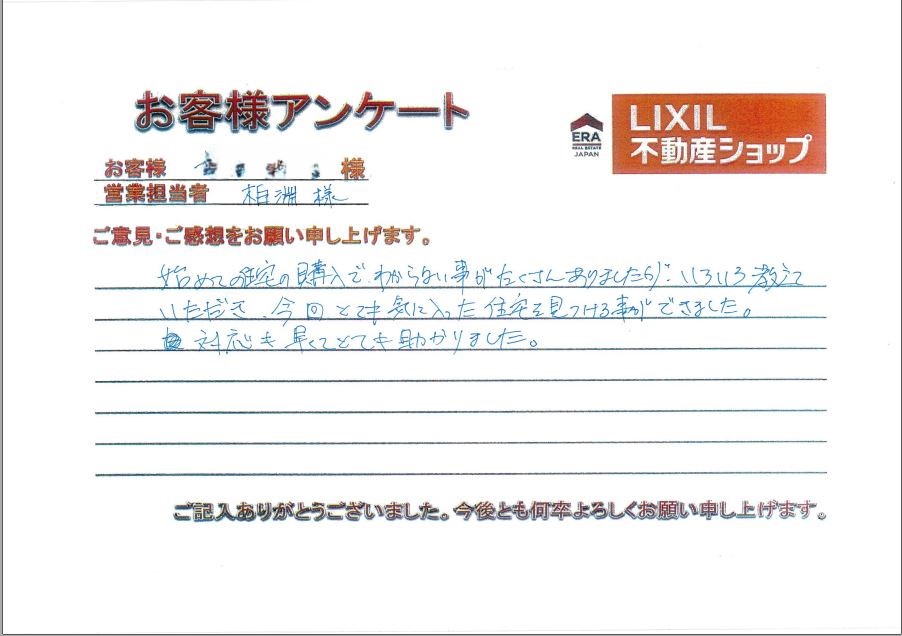 お客様アンケート
ERA
REAL ESTATE
JAPAN
LIXIL
不動産ショップ
お客様 様
営業担当者 柏淵 様
ご意見・ご感想をお願い申し上げます。
始めての住宅の購入でわからない事がたくさんありましたが、いろいろ教えて
いただき、今回とても気に入った住宅を見つける事ができました。
対応も早くてとても助かりました。
ご記入ありがとうございました。今後とも何卒よろしくお願い申し上げます。